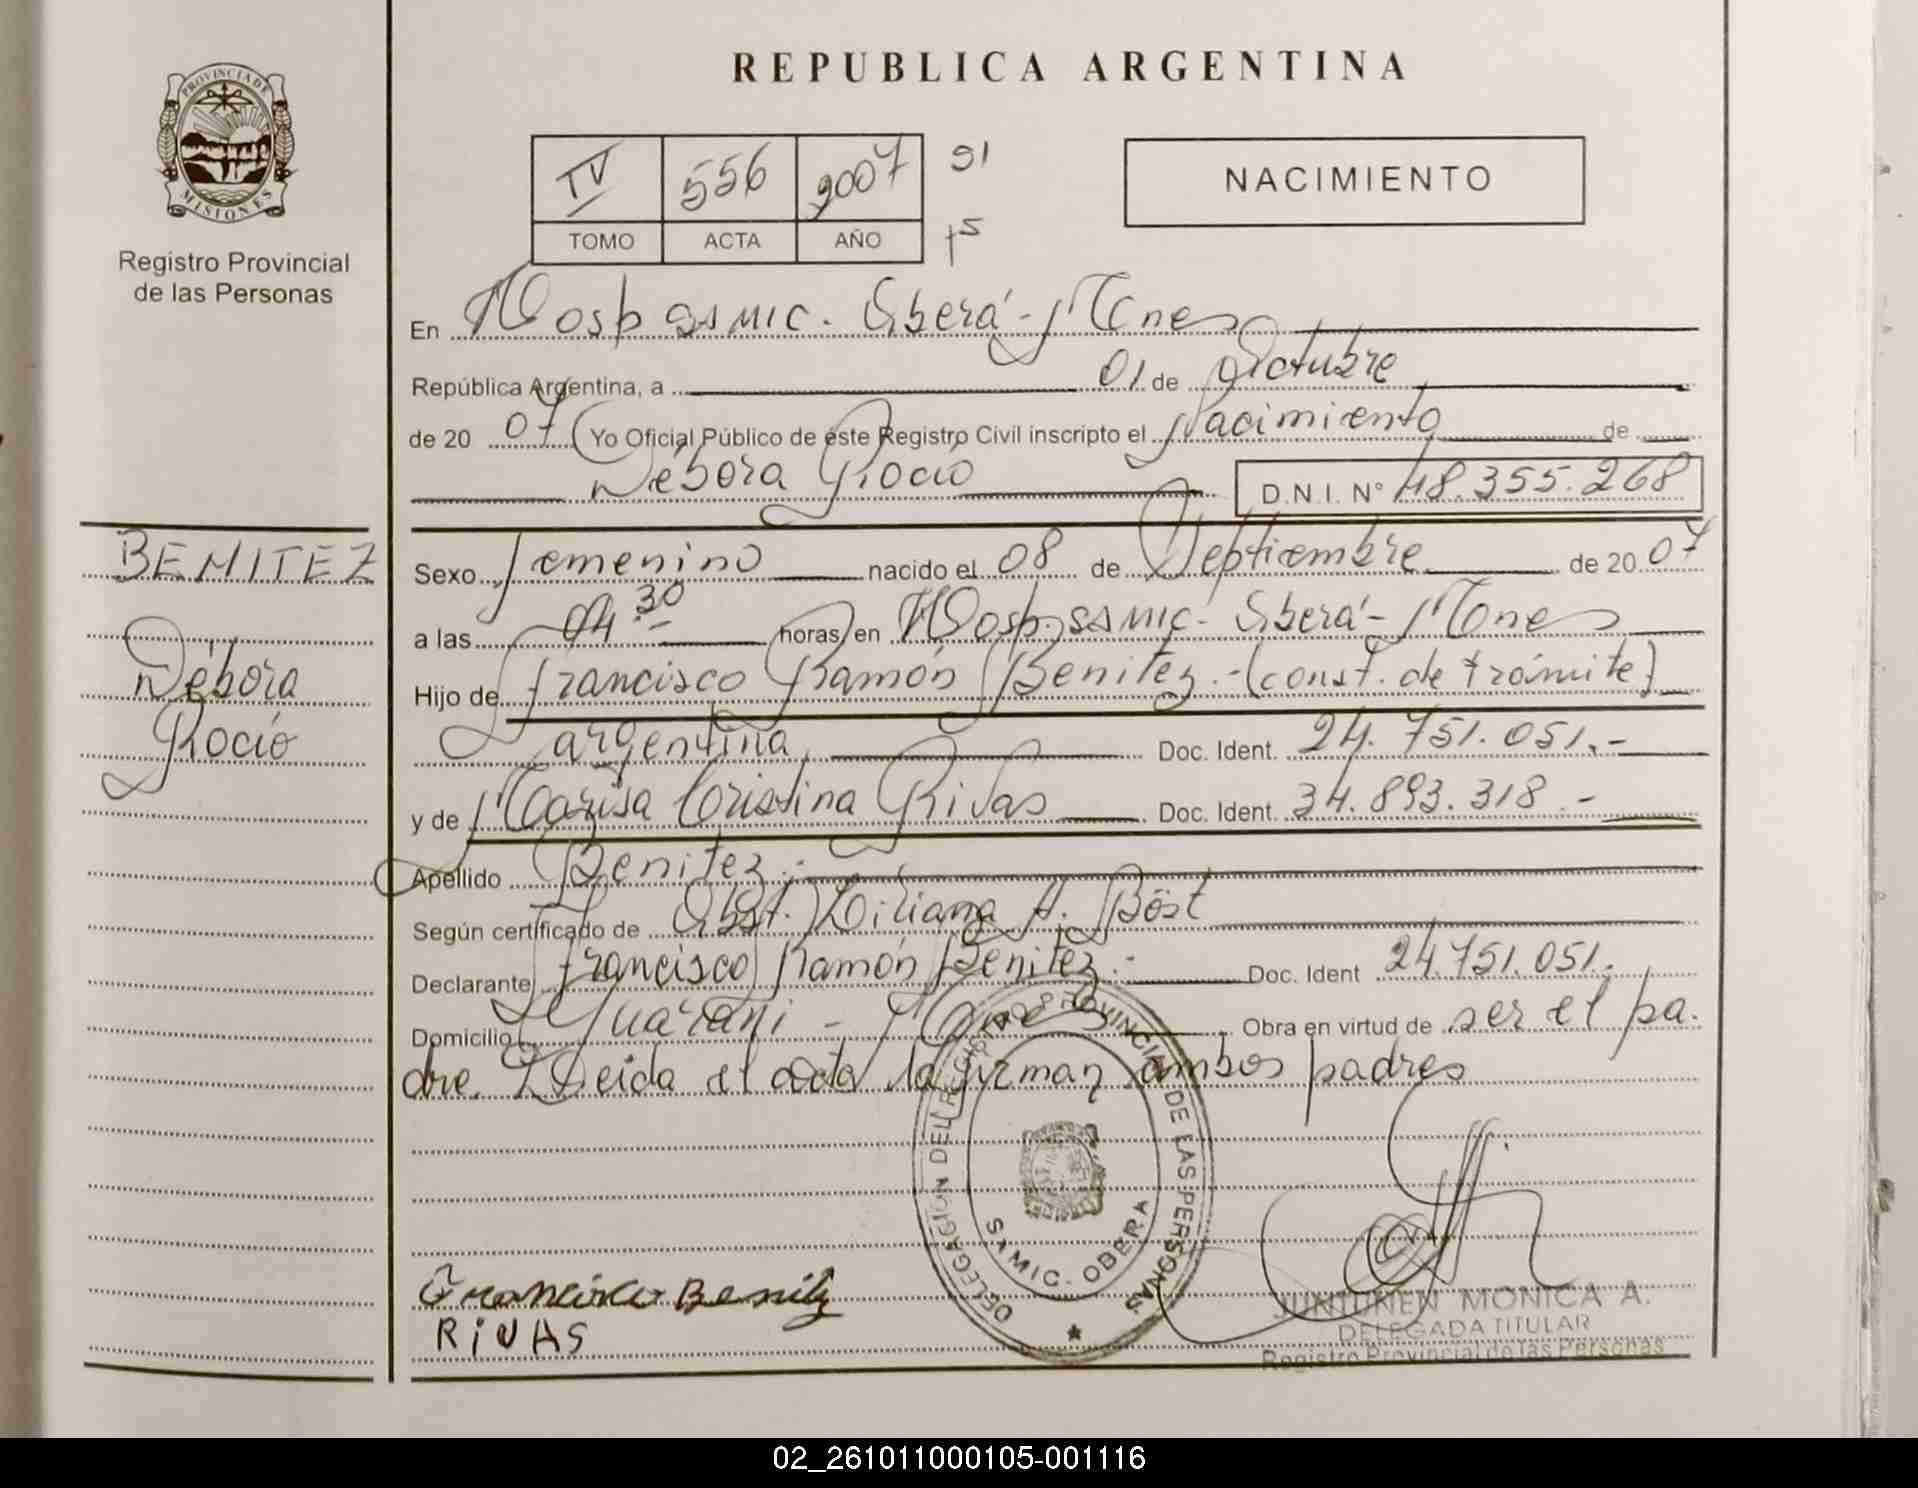 REPUBLICA ARGENTINA
PROVINCIA DE
MISIONES
Registro Provincial
de las Personas
IV 556 2007 91
TOMO ACTA AÑO 15
NACIMIENTO
En Hosp. SAMIC. Oberá - Mnes
República Argentina, a 01 de Octubre
de 20 07 Yo Oficial Público de este Registro Civil inscripto el Nacimiento de
Débora Rocío D.N.I. Nº 48.355.268
BENITEZ
Débora
Rocío
Sexo femenino nacido el 08 de Septiembre de 20 07
a las 04 30 horas en Hosp. SAMIC. Oberá - Mnes
Hijo de Francisco Ramón Benitez.-(const. de trámite)
argentina Doc. Ident. 24.751.051.-
y de Marisa Cristina Rivas Doc. Ident. 34.893.318.-
Apellido Benitez.-
Según certificado de Obst. Liliana A. Böst
Declarante Francisco Ramón Benitez.- Doc. Ident 24.751.051.-
Domicilio Guaraní - Mnes Obra en virtud de ser el pa.
dre. Leida el acta la firman ambos padres
DELEGACION DEL REGISTRO PROVINCIAL DE LAS PERSONAS
SAMIC - OBERA
Francisco Benitez
RIVAS
JUNTUNEN MONICA A.
DELEGADA TITULAR
Registro Provincial de las Personas
02_261011000105-001116